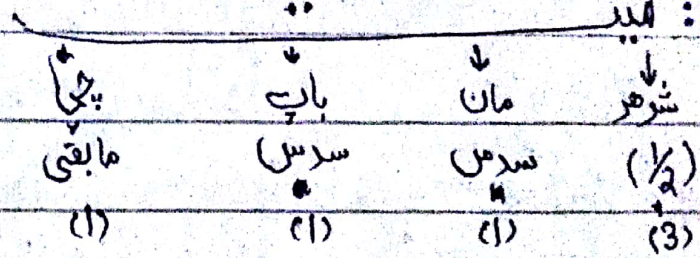 میـــت
شوھر مان باپ چچا
(1/2) سدس سدس مابقی
(3) (1) (1) (1)